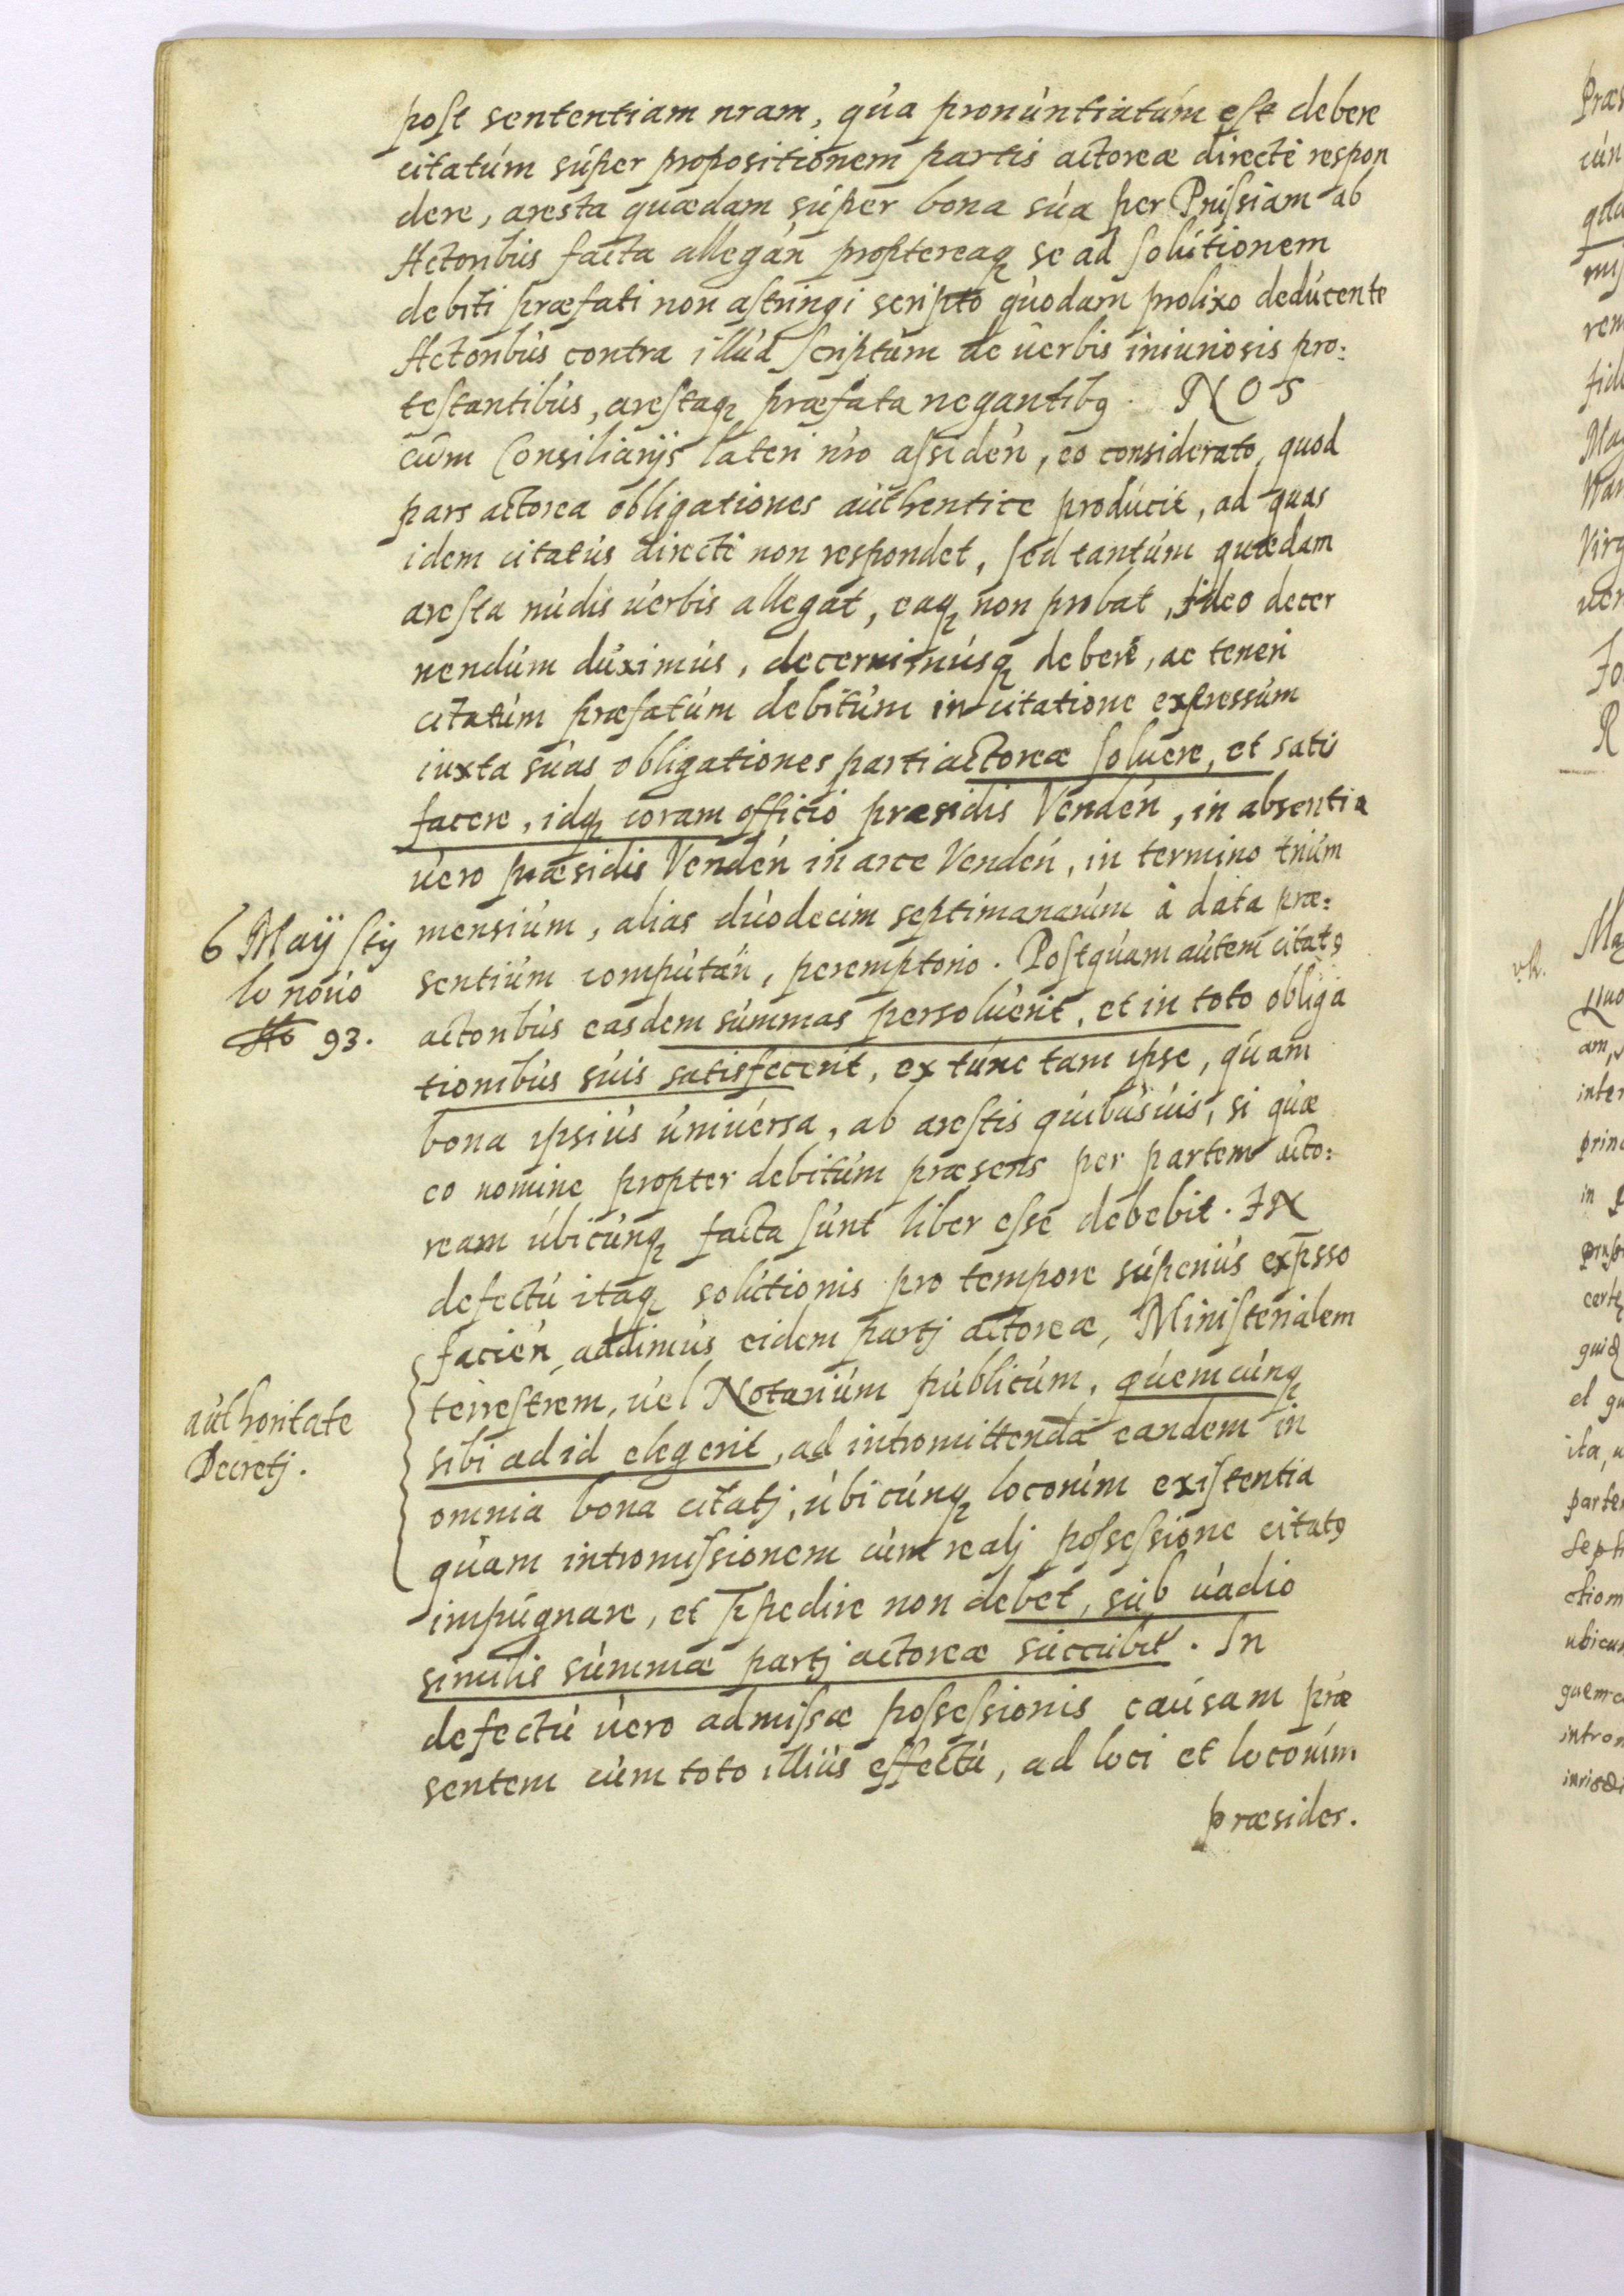 post sententiam nram, qua pronuntiatum est debere
citatum super propositionem partis actoreæ directe respon
dere, aresta quædam super bona sua per Prussiam ab
Actoribus facta allegan proptereaq se ad solutionem
debiti præfati non astringi scripto quodam prolixo deducente
Actoribus contra illud scriptum de uerbis iniuriosis pro:
testantibus, arestaq præfata negantibq. NOS
cum Consiliarijs lateri nro assiden, eo considerato, quod
pars actorea obligationes authentice producit, ad quas
idem citatus directe non respondet, sed tantum quædam
aresta nudis uerbis allegat, eaq non probat, Ideo decer
nendum duximus, decernimusq debere, ac teneri
citatum præfatum debitum in citatione expressum
iuxta suas obligationes parti actoreæ soluere, et satis
facere, idq coram officio præsidis Venden, in absentia
uero præsidis Venden in arce Venden, in termino trium
mensium, alias duodecim septimanarum à data præ:
sentium computan, peremptorio. Postquam autem citatq
actoribus easdem summas persoluerit, et in toto obliga
tionibus suis satisfecerit, ex tunc tam ipse, quam
bona ipsius uniuersa, ab arestis quibusuis, si quæ
eo nomine propter debitum præsens per partem acto:
ream ubicunq facta sunt liber esse debebit. IN
defectu itaq solutionis pro tempore superius expsso
facien, addimus eidem partj actoreæ, Ministerialem
terrestrem, uel Notarium publicum, quemcunq
sibi ad id elegerit, ad intromittendã eandem in
omnia bona citatj, ubicunq locorum existentia
quam intromissionem cum realj possessione citatq
impugnare, et Ipedire non debet, sub uadio
similis summæ partj actoreæ succubit. In
defectu uero admissæ possessionis causam præ
sentem cum toto illius effectu, ad loci et locorum
præsides.
6 Maÿ sty
lo nouo
Ao 93.
authoritate
Decretj.